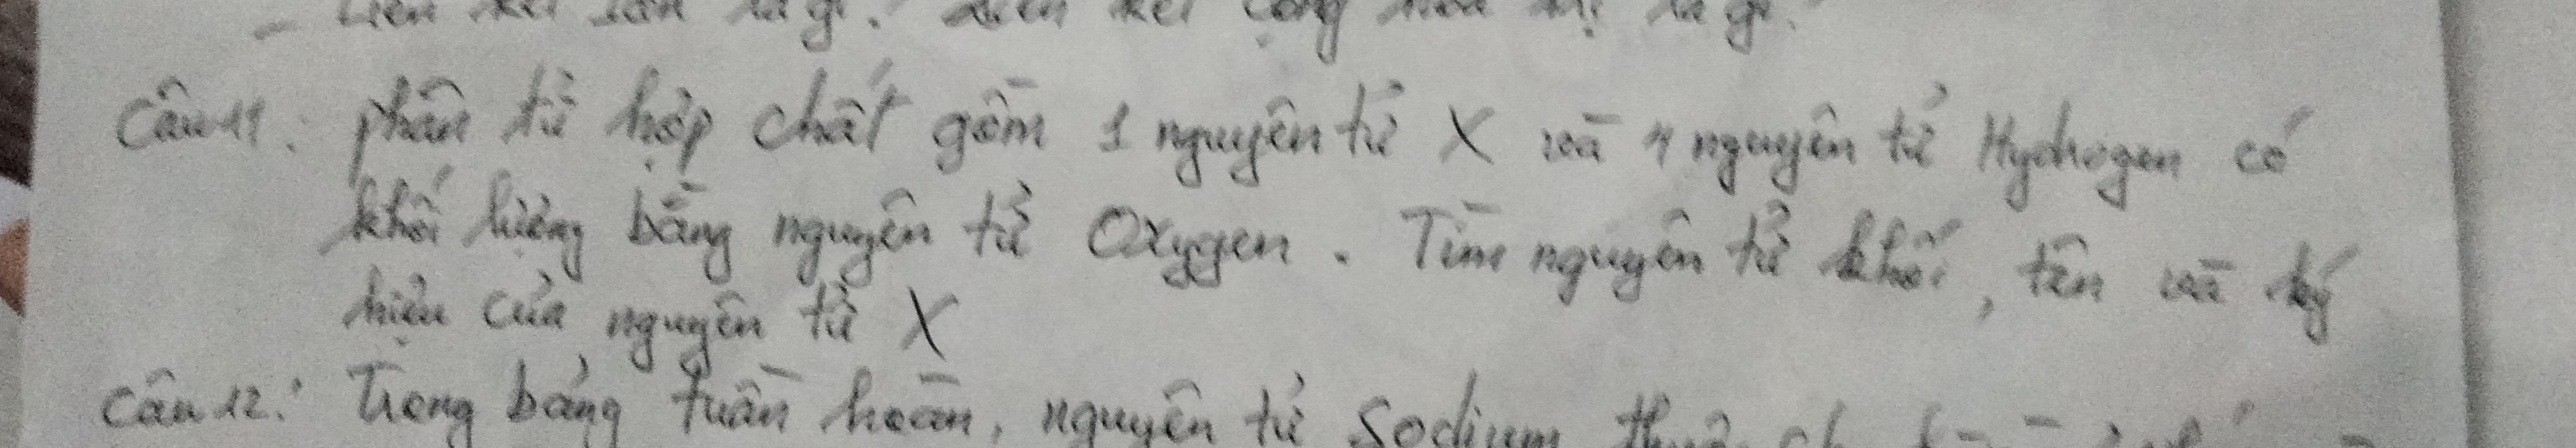 - Liên kết ion là gì? Liên kết cộng hoá trị là gì?
Câu 11: phân tử hợp chất gồm 1 nguyên tử X và 4 nguyên tử Hydrogen có
khối lượng bằng nguyên tử Oxygen. Tìm nguyên tử khối, tên và ký
hiệu của nguyên tử X
Câu 12: Trong bảng tuần hoàn, nguyên tử Sodium